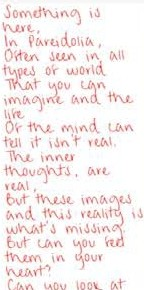 Something is
here,
In Pareidolia,
Often seen in all
types of world
That you can
imagine and the
life
Or the mind can
tell it isn't real.
The inner
thoughts, are
real,
But these images
and this reality is
what's missing.
But can you feel
them in your
heart?
Can you look at